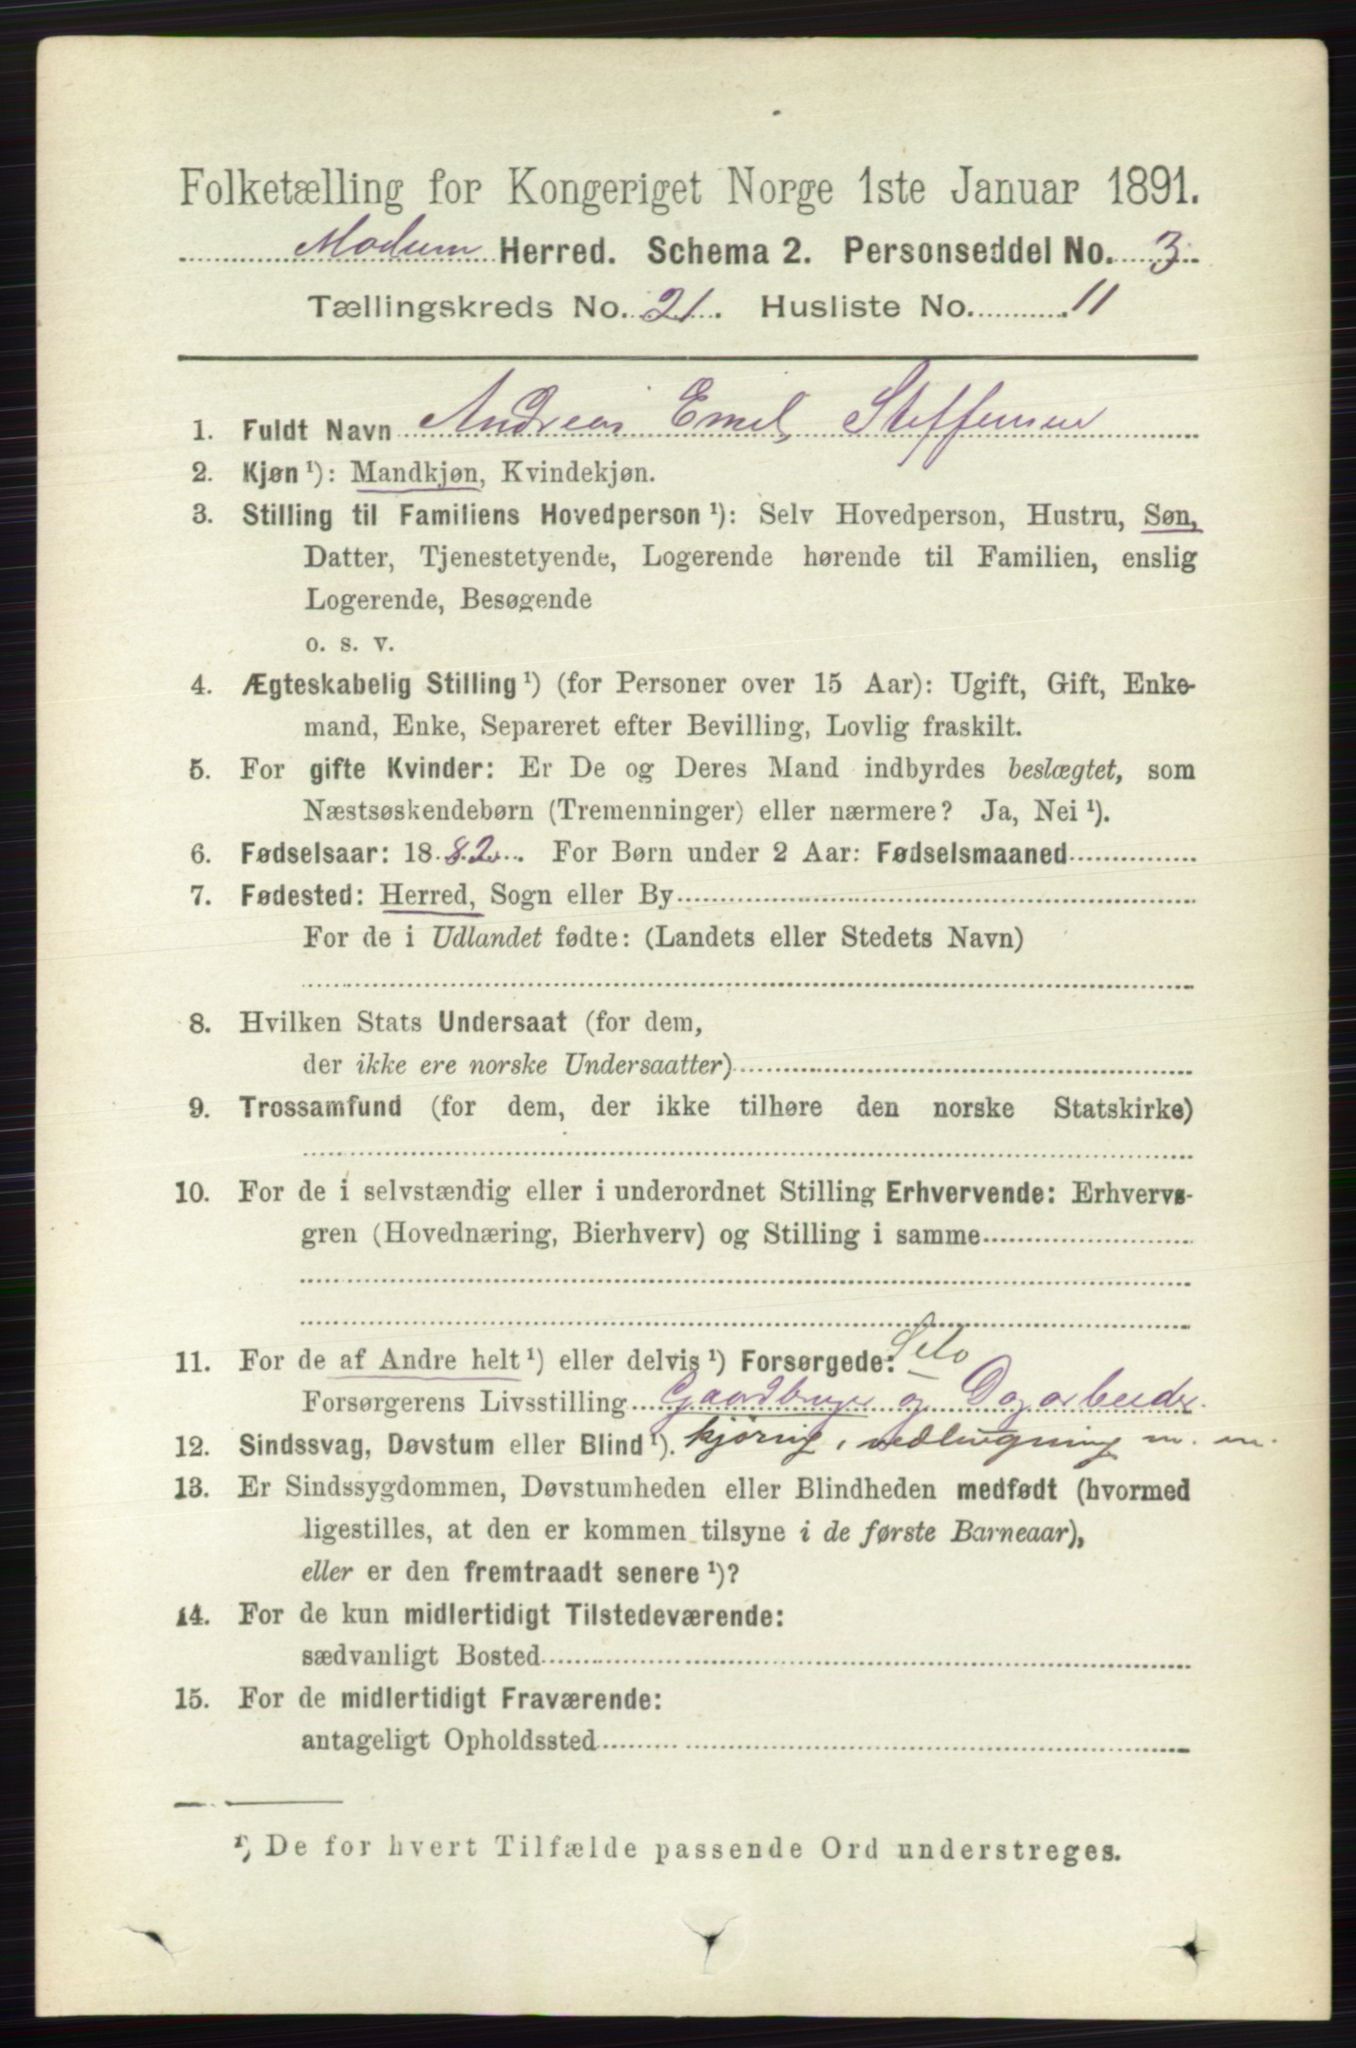 Folketælling for Kongeriget Norge 1ste Januar 1891.
Modum Herred. Schema 2. Personseddel No. 3
Tællingskreds No. 21. Husliste No. 11
1. Fuldt Navn Andreas Emil Steffensen
2. Kjøn ¹): Mandkjøn, Kvindekjøn.
3. Stilling til Familiens Hovedperson ¹): Selv Hovedperson, Hustru, Søn,
Datter, Tjenestetyende, Logerende hørende til Familien, enslig
Logerende, Besøgende
o. s. v.
4. Ægteskabelig Stilling ¹) (for Personer over 15 Aar): Ugift, Gift, Enke-
mand, Enke, Separeret efter Bevilling, Lovlig fraskilt.
5. For gifte Kvinder: Er De og Deres Mand indbyrdes beslægtet, som
Næstsøskendebørn (Tremenninger) eller nærmere? Ja, Nei ¹).
6. Fødselsaar: 1882. For Børn under 2 Aar: Fødselsmaaned
7. Fødested: Herred, Sogn eller By
For de i Udlandet fødte: (Landets eller Stedets Navn)
8. Hvilken Stats Undersaat (for dem,
der ikke ere norske Undersaatter)
9. Trossamfund (for dem, der ikke tilhøre den norske Statskirke)
10. For de i selvstændig eller i underordnet Stilling Erhvervende: Erhvervs-
gren (Hovednæring, Bierhverv) og Stilling i samme
Selv
11. For de af Andre helt ¹) eller delvis ¹) Forsørgede:
Forsørgerens Livsstilling Gaardbruger og Dagarbeider
12. Sindssvag, Døvstum eller Blind ¹). kjøring, vedhugning m. m.
13. Er Sindssygdommen, Døvstumheden eller Blindheden medfødt (hvormed
ligestilles, at den er kommen tilsyne i de første Barneaar),
eller er den fremtraadt senere ¹)?
14. For de kun midlertidigt Tilstedeværende:
sædvanligt Bosted
15. For de midlertidigt Fraværende:
antageligt Opholdssted
¹) De for hvert Tilfælde passende Ord understreges.